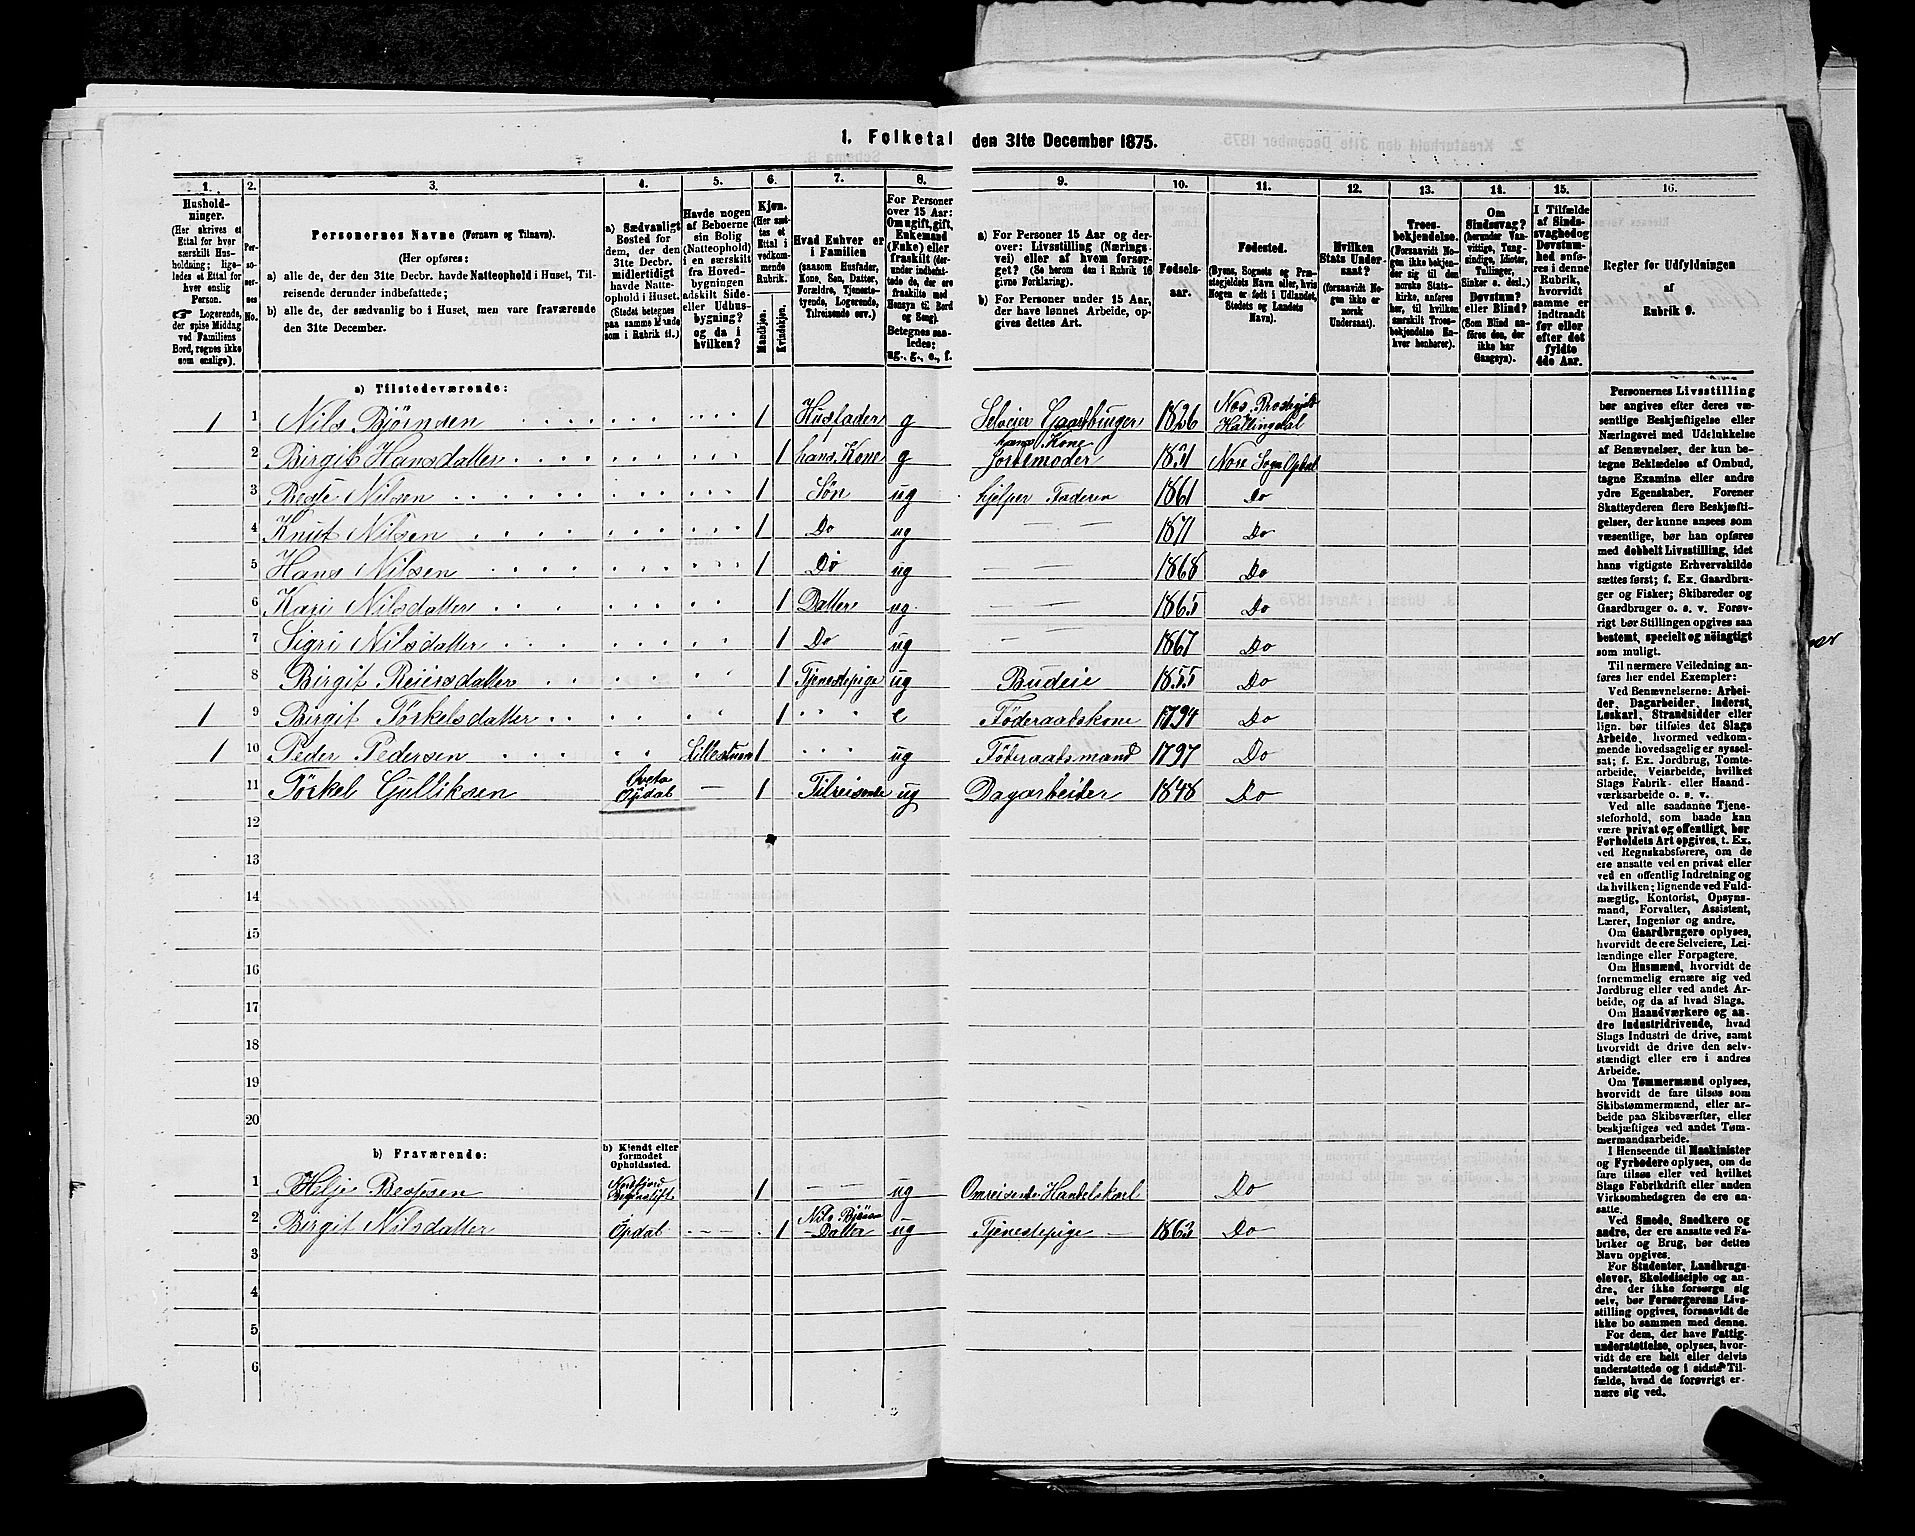 1. Folketal den 31te December 1875.
1. 2. 3. 4. 5. 6. 7. 8. 9. 10. 11. 12. 13. 14. 15. 16.
Hushold-
ninger.
(Her skrives et
Ettal for hver
særskilt Hus-
holdning; lige-
ledes et Ettal for
hver enslig
Person.
☞ Logerende,
der spise Middag
ved Familiens
Bord, regnes ikke
som enslige).
Per-
so-
ner-
nes
No.
Personernes Navne (Fornavn og Tilnavn).
(Her opføres:
a) alle de, der den 31te Decbr. havde Natteophold i Huset, Til-
reisende derunder indbefattede;
b) alle de, der sædvanlig bo i Huset, men vare fraværende
den 31te December.
a) Sædvanligt
Bosted for
dem, der den
31te Decbr.
midlertidigt
havde Natte-
ophold i Huset.
(Stedet betegnes
paa samme Maade
som i Rubrik 11.)
Havde nogen
af Beboerne
sin Bolig
(Natteophold)
i en særskilt
fra Hoved-
bygningen
adskilt Side-
eller Udhus-
bygning?
og da i
hvilken?
Kjøn.
(Her sæt-
tes et
Ettal i
vedkom-
mende
Rubrik.
Mandkjøn.
Kvindekjøn.
Hvad Enhver er
i Familien
(saasom Husfader,
Kone, Søn, Datter,
Forældre, Tjeneste-
tyende, Logerende,
Tilreisende osv.)
For Personer
over 15 Aar:
Om ugift, gift,
Enkemand
(Enke) eller
fraskilt (der-
under indbefat-
tede de, der ere
fraskilte med
Hensyn til Bord
og Seng).
Betegnes saa-
ledes:
ug., g., e., f.
a) For Personer 15 Aar og der-
over: Livsstilling (Nærings-
vei) eller af hvem forsør-
get? (Se herom den i Rubrik 16
givne Forklaring).
b) For Personer under 15 Aar,
der have lønnet Arbeide, op-
gives dettes Art.
Fødsels-
aar.
Fødested.
(Byens, Sognets og Præ-
stegjeldets Navn eller, hvis
Nogen er født i Udlandet,
Stedets og Landets
Navn).
Hvilken
Stats Under-
saat?
(forsaavidt No-
gen ikke er
norsk
Undersaat).
Troes-
bekjendelse.
(Forsaavidt No-
gen ikke bekjen-
der sig til den
norske Stats-
kirke, anføres
her, til hvilken
særskilt Troes-
bekjendelse En-
hver henhører).
Om
Sindssvag?
(herunder Van-
vittige, Tung-
sindige, Idioter,
Tullinger,
Sinker o. desl.)
Døvstum?
eller Blind?
(Som Blind an-
føres den, der
ikke har
Gangsyn).
I Tilfælde
af Sinds-
svaghed og
Døvstum-
hed anfø-
res i denne
Rubrik,
hvorvidt
samme er
indtraadt
før eller
efter det
fyldte
4de Aar.
Regler for Udfyldningen
af
Rubrik 9.
a) Tilstedeværende:
1 1 Nils Bjørnsen 1 Husfader g Selveier Gaardbruger 1826 Nes Prestegjeld Hallingdal
2 Birgit Hansdatter 1 hans Kone g hans Kone Jordemoder 1831 Nore Sogn Opdal
3 Nilsen 1 Søn ug hjelper Faderen 1861 Do
4 Knut Nilsen 1 Do ug — — 1871 Do
5 Hans Nilsen 1 Do ug — — 1868 Do
6 Kari Nilsdatter 1 Datter ug. — — 1865 Do
7 Sigri Nilsdatter 1 Do ug — — 1867 Do
8 Birgit Reiersdatter 1 Tjenestepige ug Budeie 1855 Do
1 9 Birgit Törkelsdatter 1 e Föderaadskone 1794 Do
1 10 Peder Pedersen Lillestuen 1 ug Föderaadsmand 1797 Do
11 Törkel Gulliksen Opdal — 1 Tilreisende ug Dagarbeider 1848 Do
12
13
14
15
16
17
18
19
20
b) Fraværende:
b) Kjendt eller
formodet
Opholdssted.
1 Helje 1 — — ug Omreisende Handelskarl Do
2 Birgit Nilsdatter Opdal - - - 1 Nils Datter ug Tjenestepige — 1863 Do
3
4
5
6
Personernes Livsstilling
bør angives efter deres væ-
sentlige Beskjæftigelse eller
Næringsvei med Udelukkelse
af Benævnelser, der kun be-
tegne Beklædelse af Ombud,
tagne Examina eller andre
ydre Egenskaber. Forener
Skatteyderen flere Beskjæfti-
gelser, der kunne ansees som
væsentlige, bør han opføres
med dobbelt Livsstilling, idet
hans vigtigste Erhvervskilde
sættes først; f. Ex. Gaardbru-
ger og Fisker; Skibsreder og
Gaardbruger o. s. v. Forøv-
rigt bør Stillingen opgives saa
bestemt, specielt og nöiagtigt
som muligt.
Til nærmere Veiledning an-
føres her endel Exempler:
Ved Benævnelserne: Arbei-
der, Dagarbeider, Inderst,
Løskarl, Strandsidder eller
lign. bør tilføies det Slags
Arbeide, hvormed vedkom-
mende hovedsagelig er syssel-
sat; f. Ex. Jordbrug, Tomte-
arbeide, Veiarbeide, hvilket
Slags Fabrik- eller Haand-
værksarbeide o. s. v.
Ved alle saadanne Tjene-
steforhold, som baade kan
være privat og offentligt, bør
Forholdets Art opgives, t. Ex.
ved Regnskabsførere, om de
ere ansatte ved en privat eller
ved en offentlig Indretning og
da hvilken; lignende ved Fuld-
mægtig, Kontorist, Opsyns-
mand, Forvalter, Assistent,
Lærer, Ingeniør og andre.
Om Gaardbrugere oplyses,
hvorvidt de ere Selveiere, Lei-
lændinge eller Forpagtere.
Om Husmænd, hvorvidt de
fornemmelig ernære sig ved
Jordbrug eller ved andet Ar-
beide, og da af hvad Slags.
Om Haandværkere og an-
dre Industridrivende, hvad
Slags Industri de drive, samt
hvorvidt de drive den selv-
stændigt eller ere i andres
Arbeide.
Om Tømmermænd oplyses,
hvorvidt de fare tilsøs som
Skibstømmermænd, eller ar-
beide paa Skibsværfter, eller
beskjæftiges ved andet Tøm-
mermandsarbeide.
I Henseende til Maskinister
og Fyrbødere oplyses, om de
fare tilsøs eller ved hvilket
Slags Fabrikdrift eller anden
Virksomhedsgren de ere an-
satte.
Ved Smede, Snedkere og
andre, der ere ansatte ved Fa-
briker og Brug, bør dettes
Navn opgives.
For Studenter, Landbrugs-
elever, Skoledisciple og an-
dre, der ikke forsørge sig
selv, bør Forsørgerens Livs-
stilling opgives, forsaavidt de
ikke bo sammen med denne.
For dem, der have Fattig-
understøttelse, oplyses, hvor-
vidt de ere helt eller delvis
understøttede og i sidste Til-
fælde, hvad de forøvrigt er-
nære sig ved.